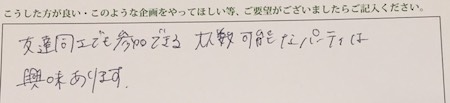 こうした方が良い・このような企画をやってほしい等、ご要望がございましたらご記入ください。
友達同士でも参加できる 大人数可能なパーティは
興味あります。